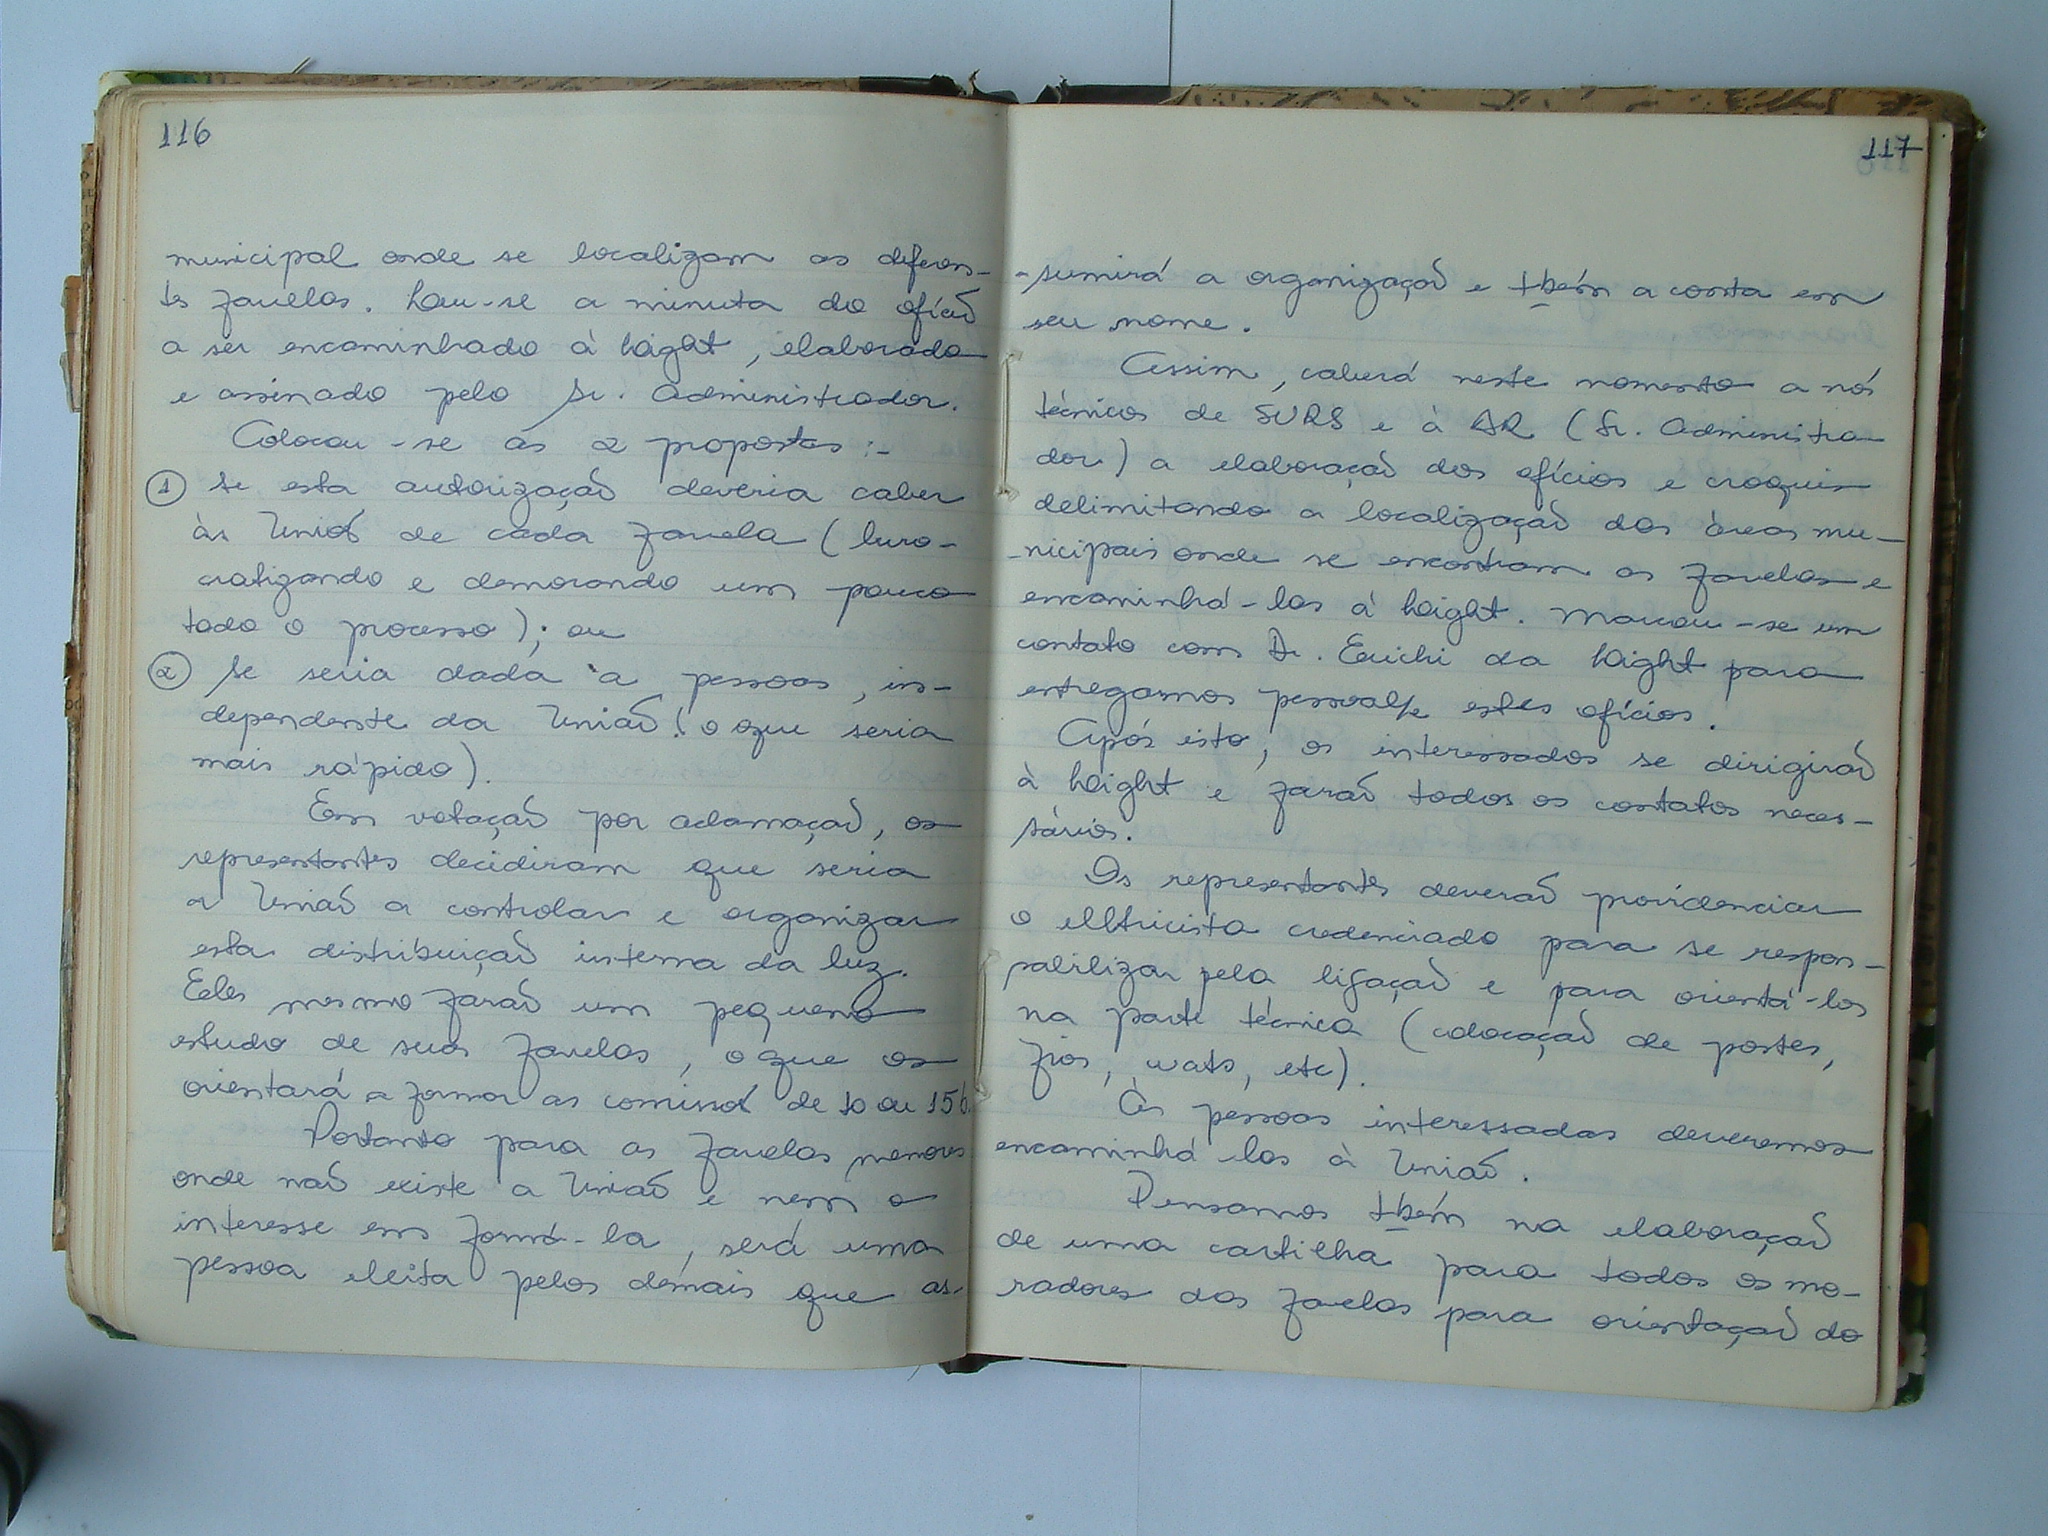 116
municipal onde se localizam as diferen-
tes favelas. Leu-se a minuta do ofício
a ser encaminhado à Light, elaborado
e assinado pelo Sr. Administrador.
Colocou-se as 2 propostas:-
1 Se esta autorização deveria caber
às Uniões de cada favela (buro-
cratizando e demorando um pouco
todo o processo); ou
2 Se seria dada a pessoas, in-
dependente da União (o que seria
mais rápido).
Em votação por aclamação, os
representantes decidiram que seria
a União a controlar e organizar
esta distribuição interna da luz.
Eles mesmo farão um pequeno
estudo de suas favelas, o que os
orientará a formar as comissões de 10 ou 15 b.
Portanto para as favelas menores
onde não existe a União e nem o
interesse em formá-la, será uma
pessoa eleita pelos demais que as-
117
-sumirá a organização e tbém a conta em
seu nome.
Assim, caberá neste momento a nós
técnicos de SURS e à AR (Sr. Administra-
dor) a elaboração dos ofícios e croquis
delimitando a localização das áreas mu-
-nicipais onde se encontram as favelas e
encaminhá-los à Light. Marcou-se um
contato com Dr. Euichi da Light para
entregarmos pessoalte estes ofícios.
Após isto, os interessados se dirigirão
à Light e farão todos os contatos neces-
sários.
Os representantes deverão providenciar
o eletricista credenciado para se respon-
sabilizar pela ligação e para orientá-los
na parte técnica (colocação de postes,
fios, wats, etc).
Às pessoas interessadas deveremos
encaminhá-los à União.
Pensamos tbém na elaboração
de uma cartilha para todos os mo-
radores das favelas para orientação do